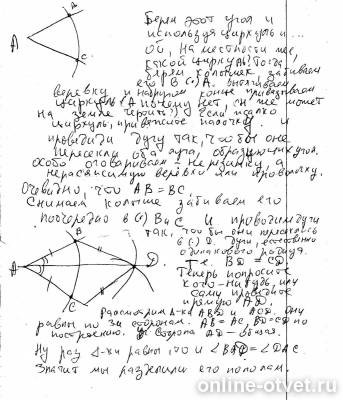 Берем этот угол и
используя циркуль и ...
ой, на местности же,
какой циркуль! Тогда
берем колышек, забиваем
его в (·) A,
веревку и на другом конце привязываем
циркуль (А почему нет, он же может
на земле чертить?) Если жалко
циркуль, привяжите палочку и
проводим дугу так, чтобы она
пересекла оба луча, образующих угол.
Особо оговариваем - не резинку, а
нерастяжимую веревку или проволоку.
Очевидно, что AB = BC.
Снимаем колыше забиваем его
поочередно в (·) B и C и проводим дуги
так, чтобы они пересеклись
в (·) D. Дуги, естественно
одинакового радиуса.
Т.е. BD = CD
Теперь попросите
кого-нибудь, или
сами проведите
прямую AD.
Рассмотрим Δ-ка ABD и ACD. Они
равны по 3м сторонам. AB = AC, BD = CD по
построению. Сторона AD - общая.
Ну раз Δ-ки равны, то и ∠BAD = ∠DAC
Значит мы разделили его пополам.
A
B
C
A
B
C
D
online-otvet.ru